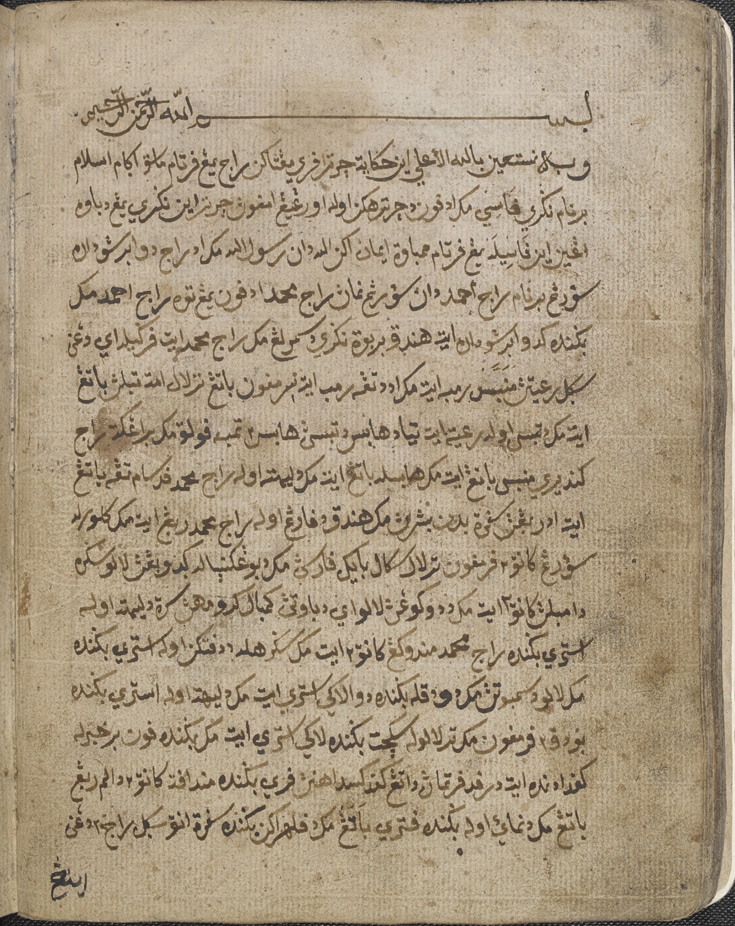 بسم الله الرحمن الرحيم
وبه نستعين بالله الأعلى اين حكاية چرترا فري مڠتاكن راج يڠ فرتام ماسق اڬام اسلام
برنام نڬري فاسي مك اد فون دچرتراكن اوله اورڠ يڠ امفون چرتر اين نڬري يڠ دباوه
اڠين اين فاسيله يڠ فرتام ممباوة ايمان اكن الله دان رسول الله مك اد راج دوا برسودارا
سؤرڠ برنام راج احمد دان سؤرڠ نمان راج محمد ادفون يڠ توه راج احمد مك
بڬنده كدوا برسودارا ايت هندق بربوة نڬري د سمرلڠ مك راج محمد ايت فرڬيله اي دڠن
سڬل رعيتڽ منبس رمب ايت مك اد دتڠه رمب ايت سرمفون باتڠ ترلالو امة تبلڽ باتڠ
ايت مك دتبس اوله رعيت ايت تياد هابس دتبسڽ هابس٢ تمبه فولق مك برڠكة راج
كنديري منبس باتڠ ايت مك هابسله باتڠ ايت مك دليهة اوله راج محمد فد سام تڠه باتڠ
ايت اد ربڠڽ سفرة بدن بسرڽ مك هندق دفارڠ اوله راج محمد ربڠ ايت مك كلورله
سؤرڠ كانق٢ فرمفون ترلالو امة باءيك فارسڽ مك دبوڠكنڽاله كدوبڠڽ لالو سڬره
دامبلڽ كانق٢ ايت مك ددوكوڠڽ لالو اي دباوڽ كمبالي كرومهڽ سرة دليهة اوله
استري بڬنده راج محمد مندوكڠ كانق٢ ايت مك سڬرهله ددفتكن اوله استري بڬنده
مك لالو دسمبوتڽ مك دودقله بڬنده دوا لاكي استري ايت مك دليهة اوله استري بڬنده
بودق٢ فرمفون مك ترلالوله سوكچيت بڬنده لاكي استري ايت مك بڬنده فون برخبرله
كفد ادنده ايت درفد فرتمان داتڠ كفد كسداهنڽ فري بڬنده مندافة كانق٢ دالم ربڠ
باتڠ مك دنماءي اوله بڬنده فتري باتڠ مك دفلهراكن بڬنده سفرة انق سڬل راج٢ دڠن
ايننڠ